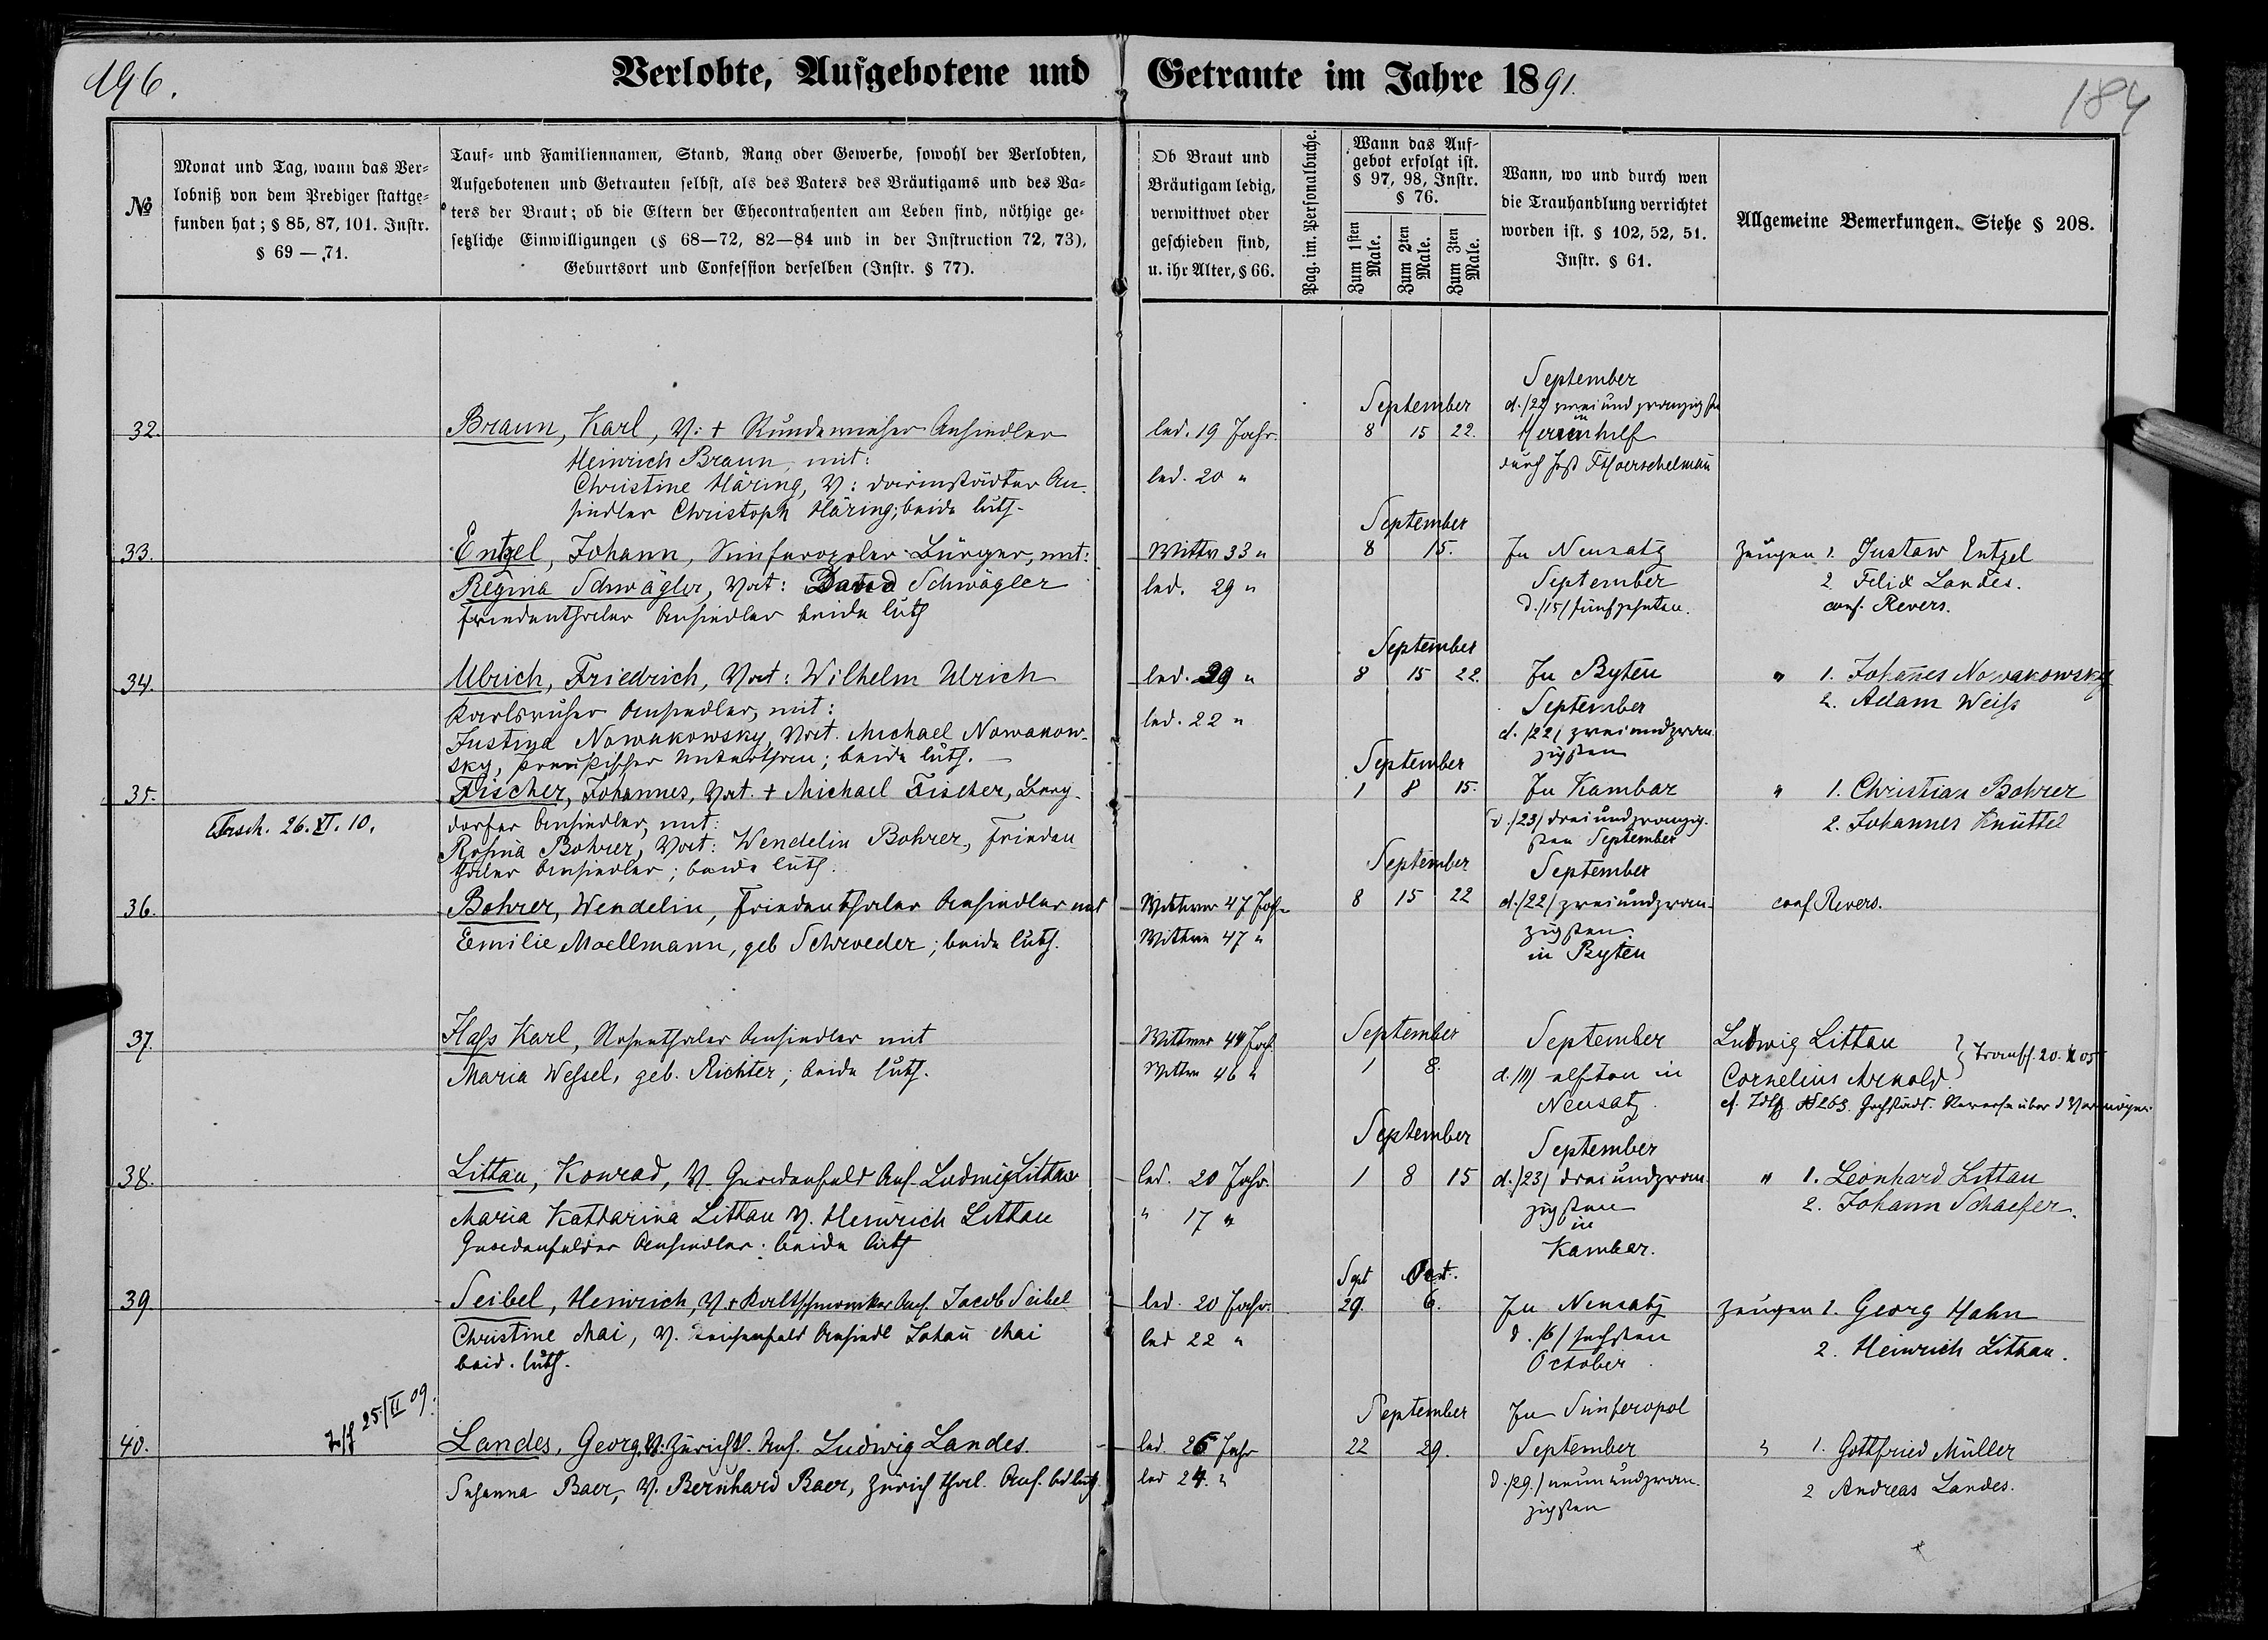 196.
Verlobte, Aufgebotene und Getraute im Jahre 1891.
184
№
Monat und Tag, wann das Ver-
lobniß von dem Prediger stattge-
funden hat; § 85, 87, 101. Instr.
§ 69 — 71.
Tauf- und Familiennamen, Stand, Rang oder Gewerbe, sowohl der Verlobten,
Aufgebotenen und Getrauten selbst, als des Vaters des Bräutigams und des Va-
ters der Braut; ob die Eltern der Ehecontrahenten am Leben sind, nöthige ge-
setzliche Einwilligungen (§ 68—72, 82—84 und in der Instruction 72, 73),
Geburtsort und Confession derselben (Instr. § 77).
Ob Braut und
Bräutigam ledig,
verwittwet oder
geschieden sind,
u. ihr Alter, § 66.
Pag. im. Personalbuche.
Wann das Auf-
gebot erfolgt ist.
§ 97, 98, Instr.
§ 76.
Zum 1sten Male.
Zum 2ten Male.
Zum 3ten Male.
Wann, wo und durch wen
die Trauhandlung verrichtet
worden ist. § 102, 52, 51.
Instr. § 61.
Allgemeine Bemerkungen. Siehe § 208.
32.
Braun, Karl, V: + Ansiedler
Heinrich Braun, mit:
Christine Häring, V: An-
siedler Christoph Häring; beide luth.
led. 19 Jahr.
led. 20 "
September
8 15 22.
September
d. /22/ zwei und zwanzigsten
in
durch Past F Hoerschelmann
33.
Entzel, Johann, Simferopoler Bürger, mit:
Regina Schwägler, Vat: David Schwägler
Friedenthaler Ansiedler beide luth
Wittw 33 "
led. 29 "
September
8 15.
In Neusatz
September
d. /15/ fünfzehnten.
Zeugen 1. Gustaw Entzel
2. Felix Landes.
conf. Revers.
34.
Ulrich, Friedrich, Vat: Wilhelm Ulrich
Karlsruher Ansiedler, mit:
Justina Nowakowsky, Vat. Michael Nowakow-
sky, preußischer Unterthan; beide luth. —
led. 29 "
led. 22 "
September
8 15 22.
In Byten
September
d. /22/ zweiundzwan-
zigsten
" 1. Johannes Nowakowsky
2. Adam Weiß
35.
Trsch. 26. XI. 10.
Fischer, Johannes, Vat. + Michael Fischer, Berg-
dorfer Ansiedler, mit:
Rosina Bohrer, Vat: Wendelin Bohrer, Frieden-
thaler Ansiedler; beide luth.
September
1 8 15.
In Kambar
d. /23/ dreiundzwanzig-
sten September
" 1. Christian Bohrer
2. Johannes Knüttel
36.
Bohrer, Wendelin, Friedenthaler Ansiedler mit
Emilie Moellmann, geb Schroeder; beide luth.
Wittwer 47 Jahr
Wittwe 47 "
September
8 15 22
September
d. /22/ zweiundzwan-
zigsten
in Byten
conf Revers.
37.
Hass Karl, Rosenthaler Ansiedler mit
Maria Wessel, geb. Richter; beide luth.
Wittwer 44 Jah.
Wittwe 46 "
September
1 8.
September
d. /11/ elften in
Neusatz.
Ludwig Littau
Cornelius Arnold.
20. X 05
№ 263.
38.
Littau, Konrad, V. Gnadenfeld Ans. Ludwig Littau
Maria Katharina Littau V. Heinrich Littau
Gnadenfelder Ansiedler; beide luth
led. 20 Jahr.
" 17 "
September
1 8 15
September
d. /23/ dreiundzwan-
zigsten
in
Kambar.
" 1. Leonhard Littau
2. Johann Schaefer.
39
Seibel, Heinrich, V. Ans. Jacob Seibel
Christine Mai, V. Reichenfeld Ansiedl Johann Mai
beid. luth.
led. 20 Jahr.
led 22 "
Sept Oct.
29. 6.
In Neusatz
d. /6/ sechsten
October
Zeugen 1. Georg Hahn
2. Heinrich Littau.
40.
25/II 09.
Landes, Georg, V: Zürichth. Ans. Ludwig Landes.
Susanna Baer, V. Bernhard Baer, Zürichthal. Ans. bd luth.
led. 26 Jahr
led 24. "
September
22 29.
In Simferopol
September
d. /29./ neunundzwan-
zigsten
" 1. Gottfried Müller
2 Andreas Landes.